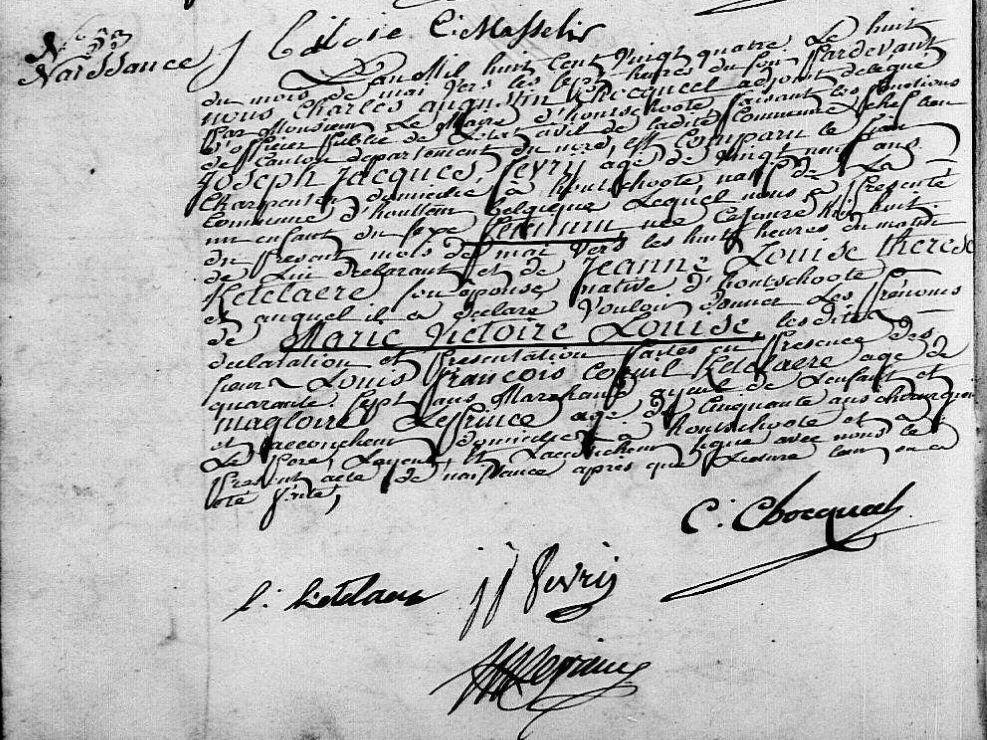 N° 53
Naissance
C. Masselis
L'an Mil huit Cent Vingt quatre Le huit
du mois de mai vers les heures du Soir Pardevant
nous Charles augustin Chocqueel adjoint delegué
Par Monsieur Le Maire d'hontschoote faisant les fonctions
d'officier Public de L'etat civil de ladite Commune Chef lieu
de Canton departement du nord, est Comparu le Sieur
Joseph Jacques Fevry agé de vingt neuf ans
Charpentier domicilié a hontschoote, natif de La
Commune d'houttem belgique Lequel nous a Presenté
un enfant du Sexe feminin née Cejourd'hui huit
du present mois de mai vers les huit heures du matin
de Lui declarant et de Jeanne Louise therese
Ketelaere Son epouse, native d'hontschoote
et auquel il a declaré Vouloir donner Les Prénoms
de Marie Victoire Louise, lesdites
declaration et Presentation faites en Presence des
sieurs Louis François Ketelaere agé de
quarante Sept ans Marchand ayeul de L'enfant et
magloire LePrince agé de Cinquante ans chirurgien
et accoucheur domiciliés a hontschoote et a
Le Pere, Layeul et Laccoucheur Signé avec nous le
Present acte de naissance apres que Lecture leur en a
eté faite,
C. Chocqueel
L. Ketelaere
JJ Fevry